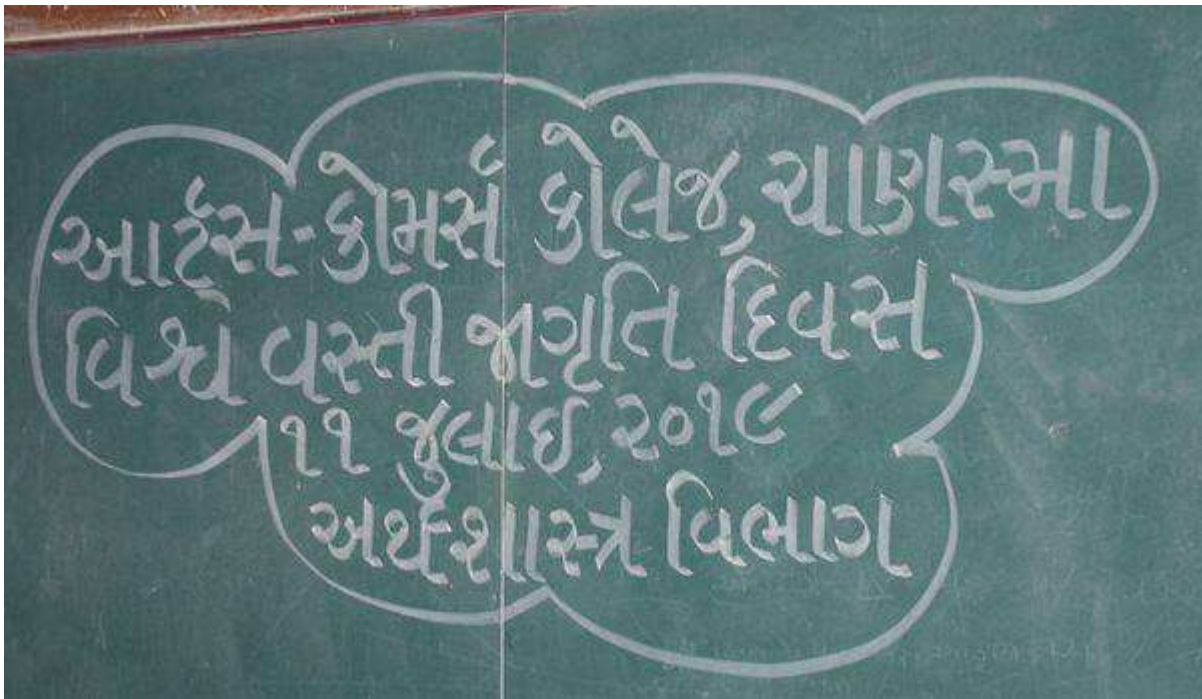 આર્ટસ-કોમર્સ કોલેજ, ચાણસ્મા
વિશ્વ વસ્તી જાગૃતિ દિવસ
૧૧ જુલાઈ, ૨૦૧૯
અર્થશાસ્ત્ર વિભાગ